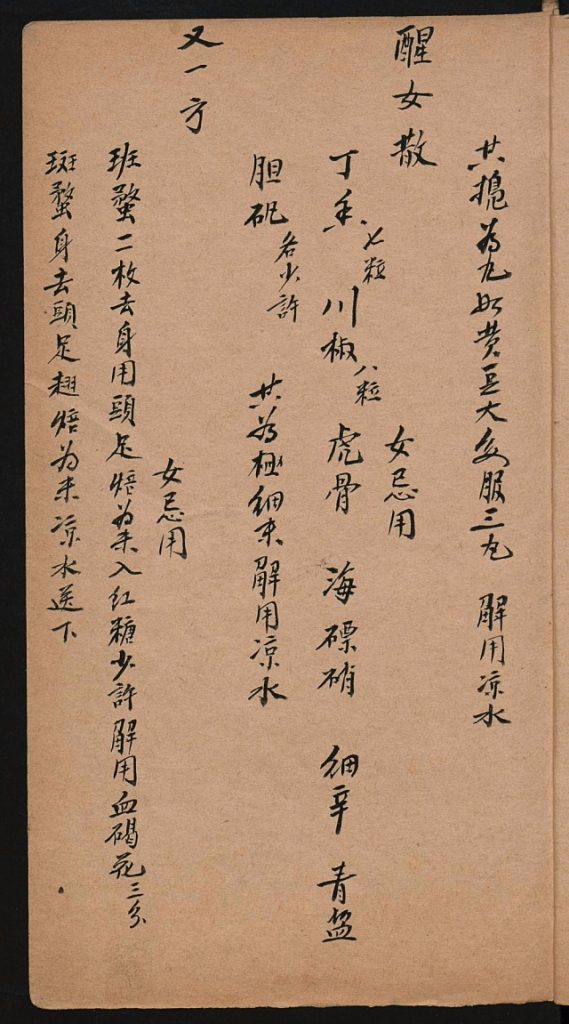 共搗為丸如黄豆大多服三丸　解用凉水
醒女散
女忌用
丁香七粒　川椒八粒　虎骨　海硾硝　細辛　青盐
胆矾各少許　共為極細末解用凉水
又一方
女忌用
班蝥二枚去身用頭足焙為末入紅糖少許解用血碣花三分
斑蝥身去頭足翅焙為末凉水送下